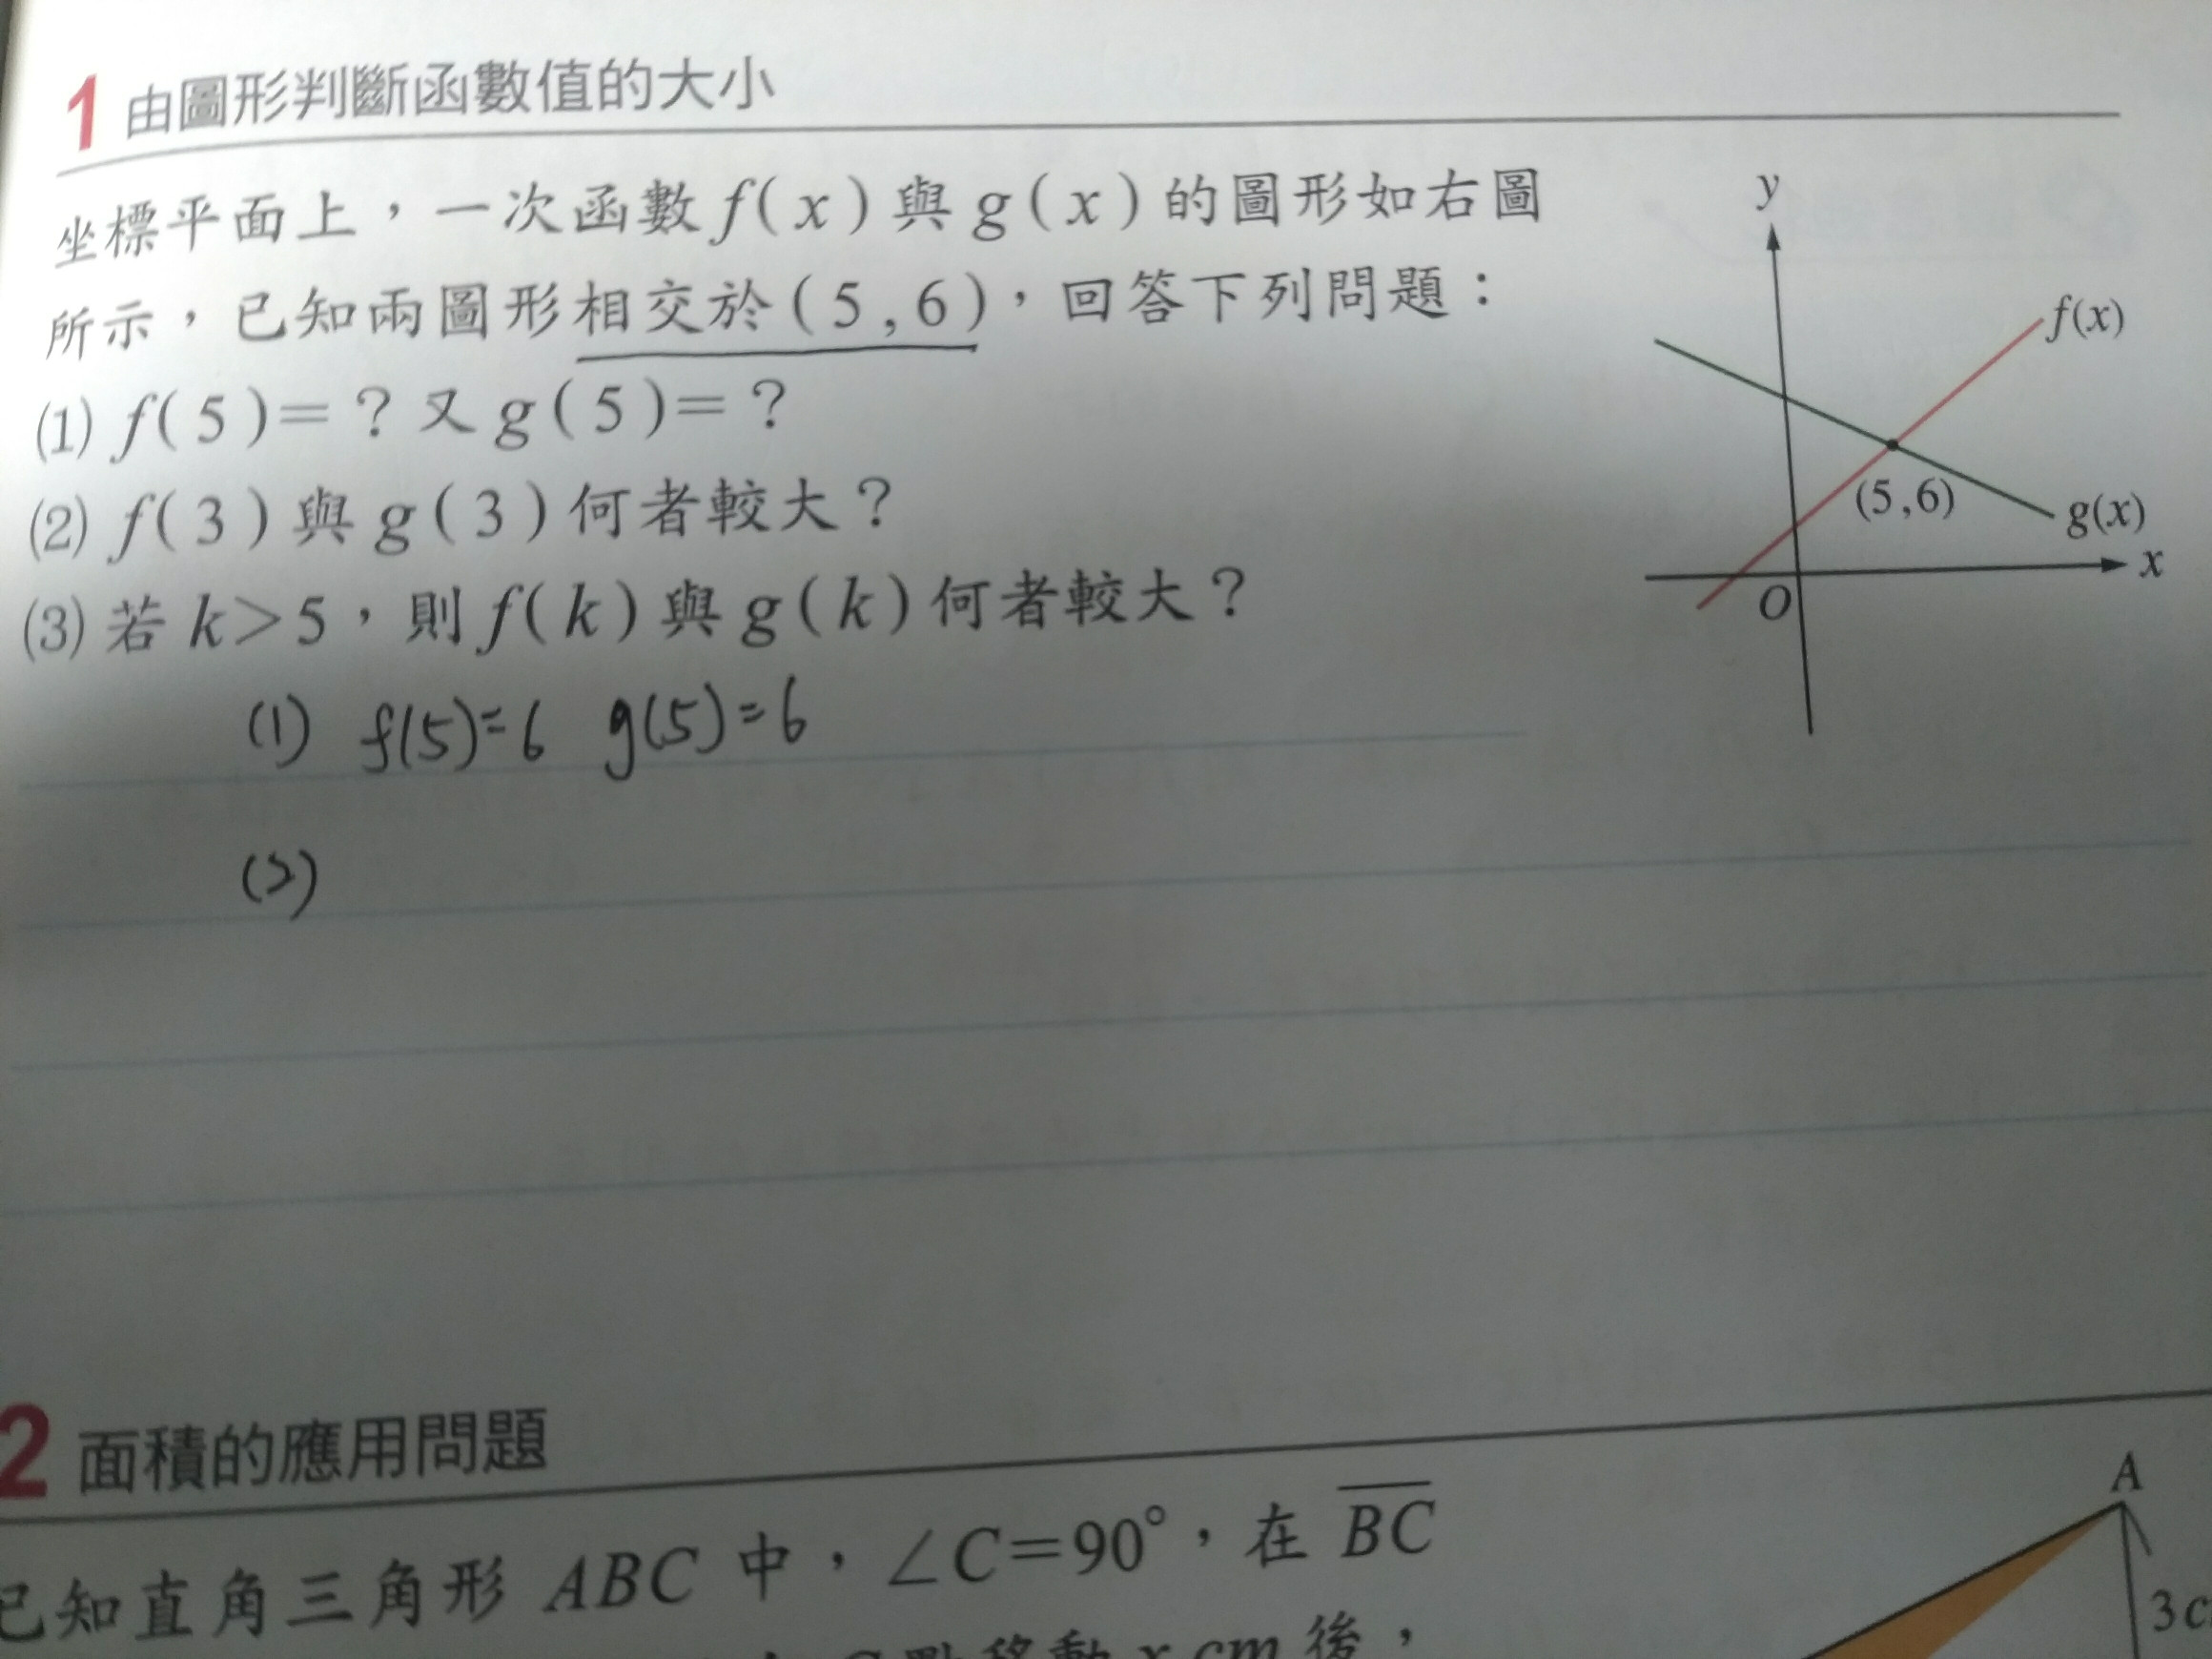 1 由圖形判斷函數值的大小
坐標平面上，一次函數 f(x) 與 g(x) 的圖形如右圖
所示，已知兩圖形相交於(5,6)，回答下列問題：
(1) f(5)=？又 g(5)=？
(2) f(3) 與 g(3) 何者較大？
(3) 若 k>5，則 f(k) 與 g(k) 何者較大？
y
f(x)
(5,6)
g(x)
x
O
(1) f(5)=6 g(5)=6
(2)
2 面積的應用問題
已知直角三角形 ABC 中，∠C=90°，在 \overline{BC}
點移動 x cm 後，
A
3